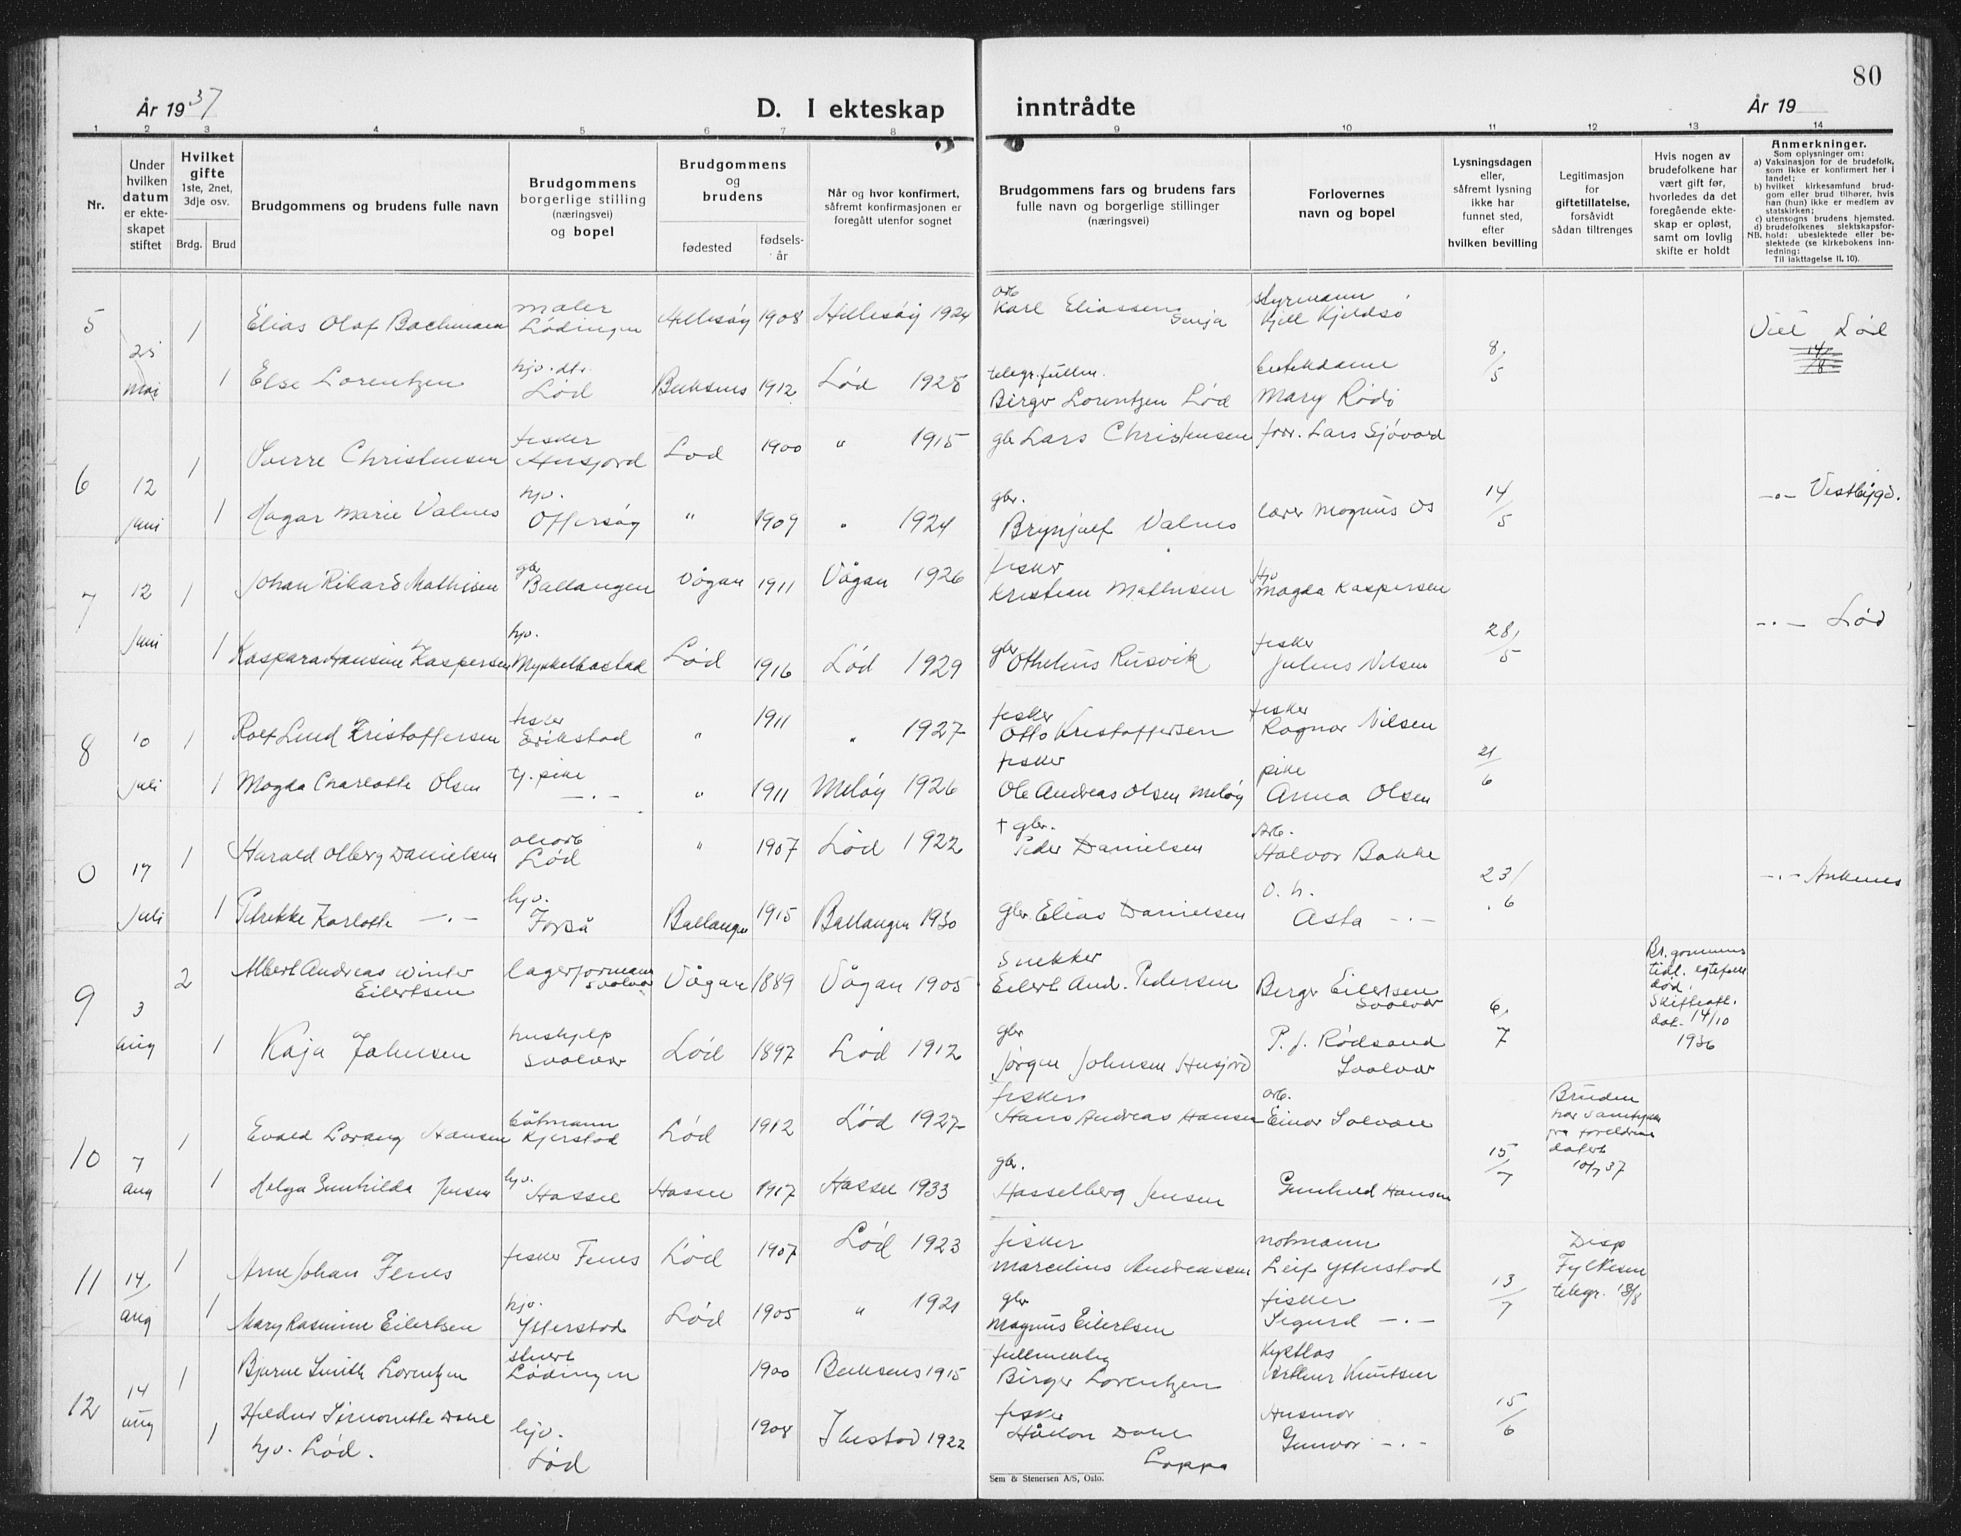 År 1937
D. I ekteskap inntrådte
År 19
80
1 2 3 4 5 6 7 8 9 10 11 12 13 14
Nr.
Under hvilken datum er ekteskapet stiftet
Hvilket gifte
1ste, 2net, 3dje osv.
Brdg. Brud
Brudgommens og brudens fulle navn
Brudgommens borgerlige stilling (næringsvei) og bopel
Brudgommens og brudens
fødested
fødselsår
Når og hvor konfirmert, såfremt konfirmasjonen er foregått utenfor sognet
Brudgommens fars og brudens fars fulle navn og borgerlige stillinger (næringsvei)
Forlovernes navn og bopel
Lysningsdagen eller, såfremt lysning ikke har funnet sted, efter hvilken bevilling
Legitimasjon for giftetillatelse, forsåvidt sådan tiltrenges
Hvis nogen av brudefolkene har vært gift før, hvorledes da det foregående ekteskap er opløst, samt om lovlig skifte er holdt
Anmerkninger.
Som oplysninger om:
a) Vaksinasjon for de brudefolk, som ikke er konfirmert her i landet;
b) hvilket kirkesamfund brudgom eller brud tilhører, hvis han (hun) ikke er medlem av statskirken;
c) utensogns brudens hjemsted.
d) brudefolkenes slektskapsforhold: ubeslektede eller beslektede (se kirkebokens innledning:
NB.
Til iakttagelse II. 10).
5 mai 1 Elias Olaf Bachmann maler Lødingen 1908 1924 Karl Eliassen Senja styrmann Kjell Kjeldsø
1 Else Lorentzen Lød Buksnes 1912 Lød 1928 telegr.fullm. Birger Lorentzen Lød Mary Rødø 8/5 Viet Lød
6 12 juni 1 Sverre Christensen fisker Husjord Lød 1900 " 1915 gbr Lars Christensen Lars Sjövord
1 Hagar Marie Valnes hjv. Offersøy " 1909 " 1924 gbr. Brynjulf Valnes lærer Magnus Os 14/5 -"- Vestbygd.
7 12 juni 1 Johan Rikard Mathisen gbr Ballangen Vågan 1911 Vågan 1926 fisker Kristian Mathisen hjv Magda Kaspersen
1 Kaspara Hansine Kaspersen hjv. Myskelbostad Lød 1916 Lød 1929 gbr Othelius Rusvik fisker Julius Nilsen 28/5 -"- Lød
8 10 juli 1 Rolf Lund Kristoffersen fisker Erikstad " 1911 " 1927 fisker Otto Kristoffersen fisker Ragnar Nilsen
1 Magda Charlotte Olsen tj. pike -"- " 1911 Meløy 1926 fisker Ole Andreas Olsen Meløy pike Anna Olsen 21/6
0 17 juli 1 Harald Olberg Danielsen Lød " 1907 Lød 1922 † gbr. Peder Danielsen arb. Halvor Bakke
1 Petrikke Karlotte -"- hjv. Forså Ballangen 1915 Ballangen 1930 gbr Elias Danielsen Asta -"- 23/6 -"- Ankenes
9 3 aug 2 Albert Andreas Winter Eilertsen lagerformann Svolvær Vågan 1889 Vågan 1905 snekker Eilert And. Pedersen Birger Eilertsen Svolvær
Br.gommens tidl. egtefelle død. Skifteatt. dat. 14/10 1936
1 Kaja Johnsen hushjelp Svolvær Lød 1897 Lød 1912 gbr Jørgen Johnsen Husjord P. J. Rødsand Svolvær 6/7
10 7 aug 1 Evald Lorang Hansen båtmann Kjerstad Lød 1912 Lød 1927 fisker Hans Andreas Hansen arb. Einar Solvoll
Bruden har samtykke fra foreldrene datert 10/7 37
1 Helga Gunhilda Jensen hjv. Hassel Hassel 1917 Hassel 1933 gbr. Hasselberg Jensen Gunhild Hansen 15/7
11 14/ aug 1 Arne Johan Fenes fisker Fenes Lød 1907 Lød 1923 fisker Marcilius Andreassen notmann Leif Ytterstad
Disp Fylkesm telegr. 13/8
1 Mary Rasmine Eilertsen hjv. Ytterstad Lød 1905 " 1921 gbr Magnus Eilertsen fisker Sigurd -"- 13/7
12 14 aug 1 Bjarne Smith Lorentzen stuert Lødingen 1900 Buksnes 1915 fullmektig Birger Lorentzen Arthur Knutsen
1 Hildur Simonette Dahl hjv. Lød. hjv. Lød 1908 Ibestad 1922 fisker Håkon Dahl Loppa Husmor Gunvor -"- 15/6
Sem & Stenersen A/S, Oslo.